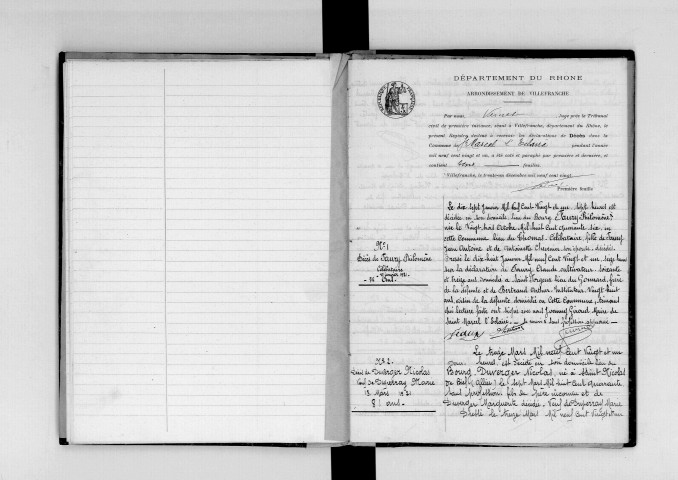 DÉPARTEMENT DU RHONE
ARRONDISSEMENT DE VILLEFRANCHE
Par nous, Juge près le Tribunal
civil de première instance, séant à Villefranche, département du Rhône, le
présent Registre destiné à recevoir les déclarations de Décès dans la
Commune de St Marcel l'Eclairé pendant l'année
mil neuf cent vingt et un, a été coté et paraphé par première et dernière, et
contient feuilles.
Villefranche, le trente décembre mil neuf cent vingt.
Première feuille
N° 1
Décès de Faury Philomène
Célibataire
17 janvier 1921
Le dix sept Janvier Mil Neuf Cent Vingt et un, sept heures est
décédée en son domicile lieu du Bourg Faury Philomène
née le Vingt huit Octobre Mil huit Cent quarante six, en
cette Commune lieu du Célibataire, fille de Faury
Jean Antoine et de Antoinette son épouse, décédés.
Dressé le dix huit Janvier Mil neuf Cent Vingt et un, heures
sur la déclaration de Faury Claude cultivateur, soixante
et treize ans domicilié à Saint Forgeux lieu du frère
de la défunte et de Bertrand Arthur, Instituteur, Vingt huit
ans, voisin de la défunte domicilié en Cette Commune, témoins
qui lecture faite ont signé avec nous Joannès Giraud Maire de
Saint Marcel l'Eclairé
N° 2
Décès de Duverger Nicolas
Veuf de Duperray Marie
13 Mars 1921
81 ans
Le treize Mars Mil neuf Cent Vingt et un
heures est décédé en son domicile lieu du
Bourg Duverger Nicolas, né à Saint Nicolas
(Allier) le sept Mars Mil huit Cent quarante
Sans profession fils de père inconnu et de
Duverger Marguerite décédée, Veuf de Duperray Marie
Dressé le treize Mars Mil neuf Cent Vingt et un